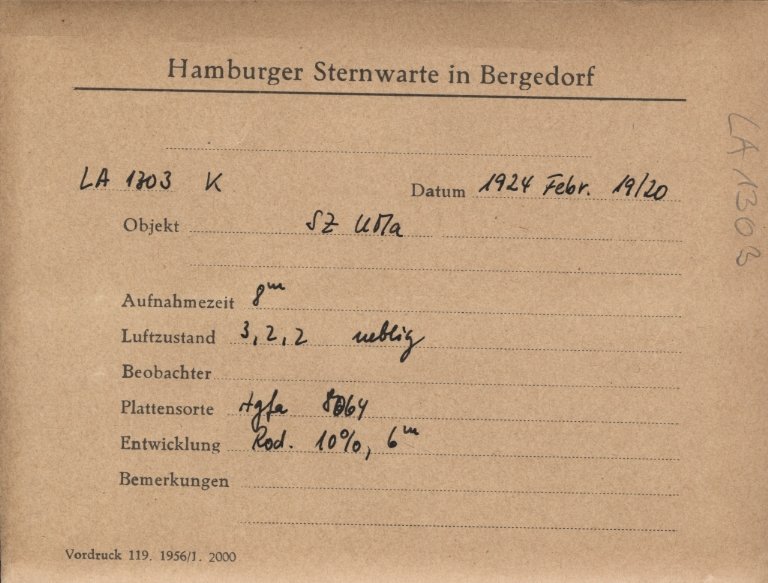 Hamburger Sternwarte in Bergedorf
LA 1303 K
Datum 1924 Febr. 19/20
Objekt SZ UMa
Aufnahmezeit 8m
Luftzustand 3, 2, 2 neblig
Beobachter
Plattensorte Agfa 8064
Entwicklung Rod. 10%, 6m
Bemerkungen
Vordruck 119. 1956/1. 2000
LA 1303